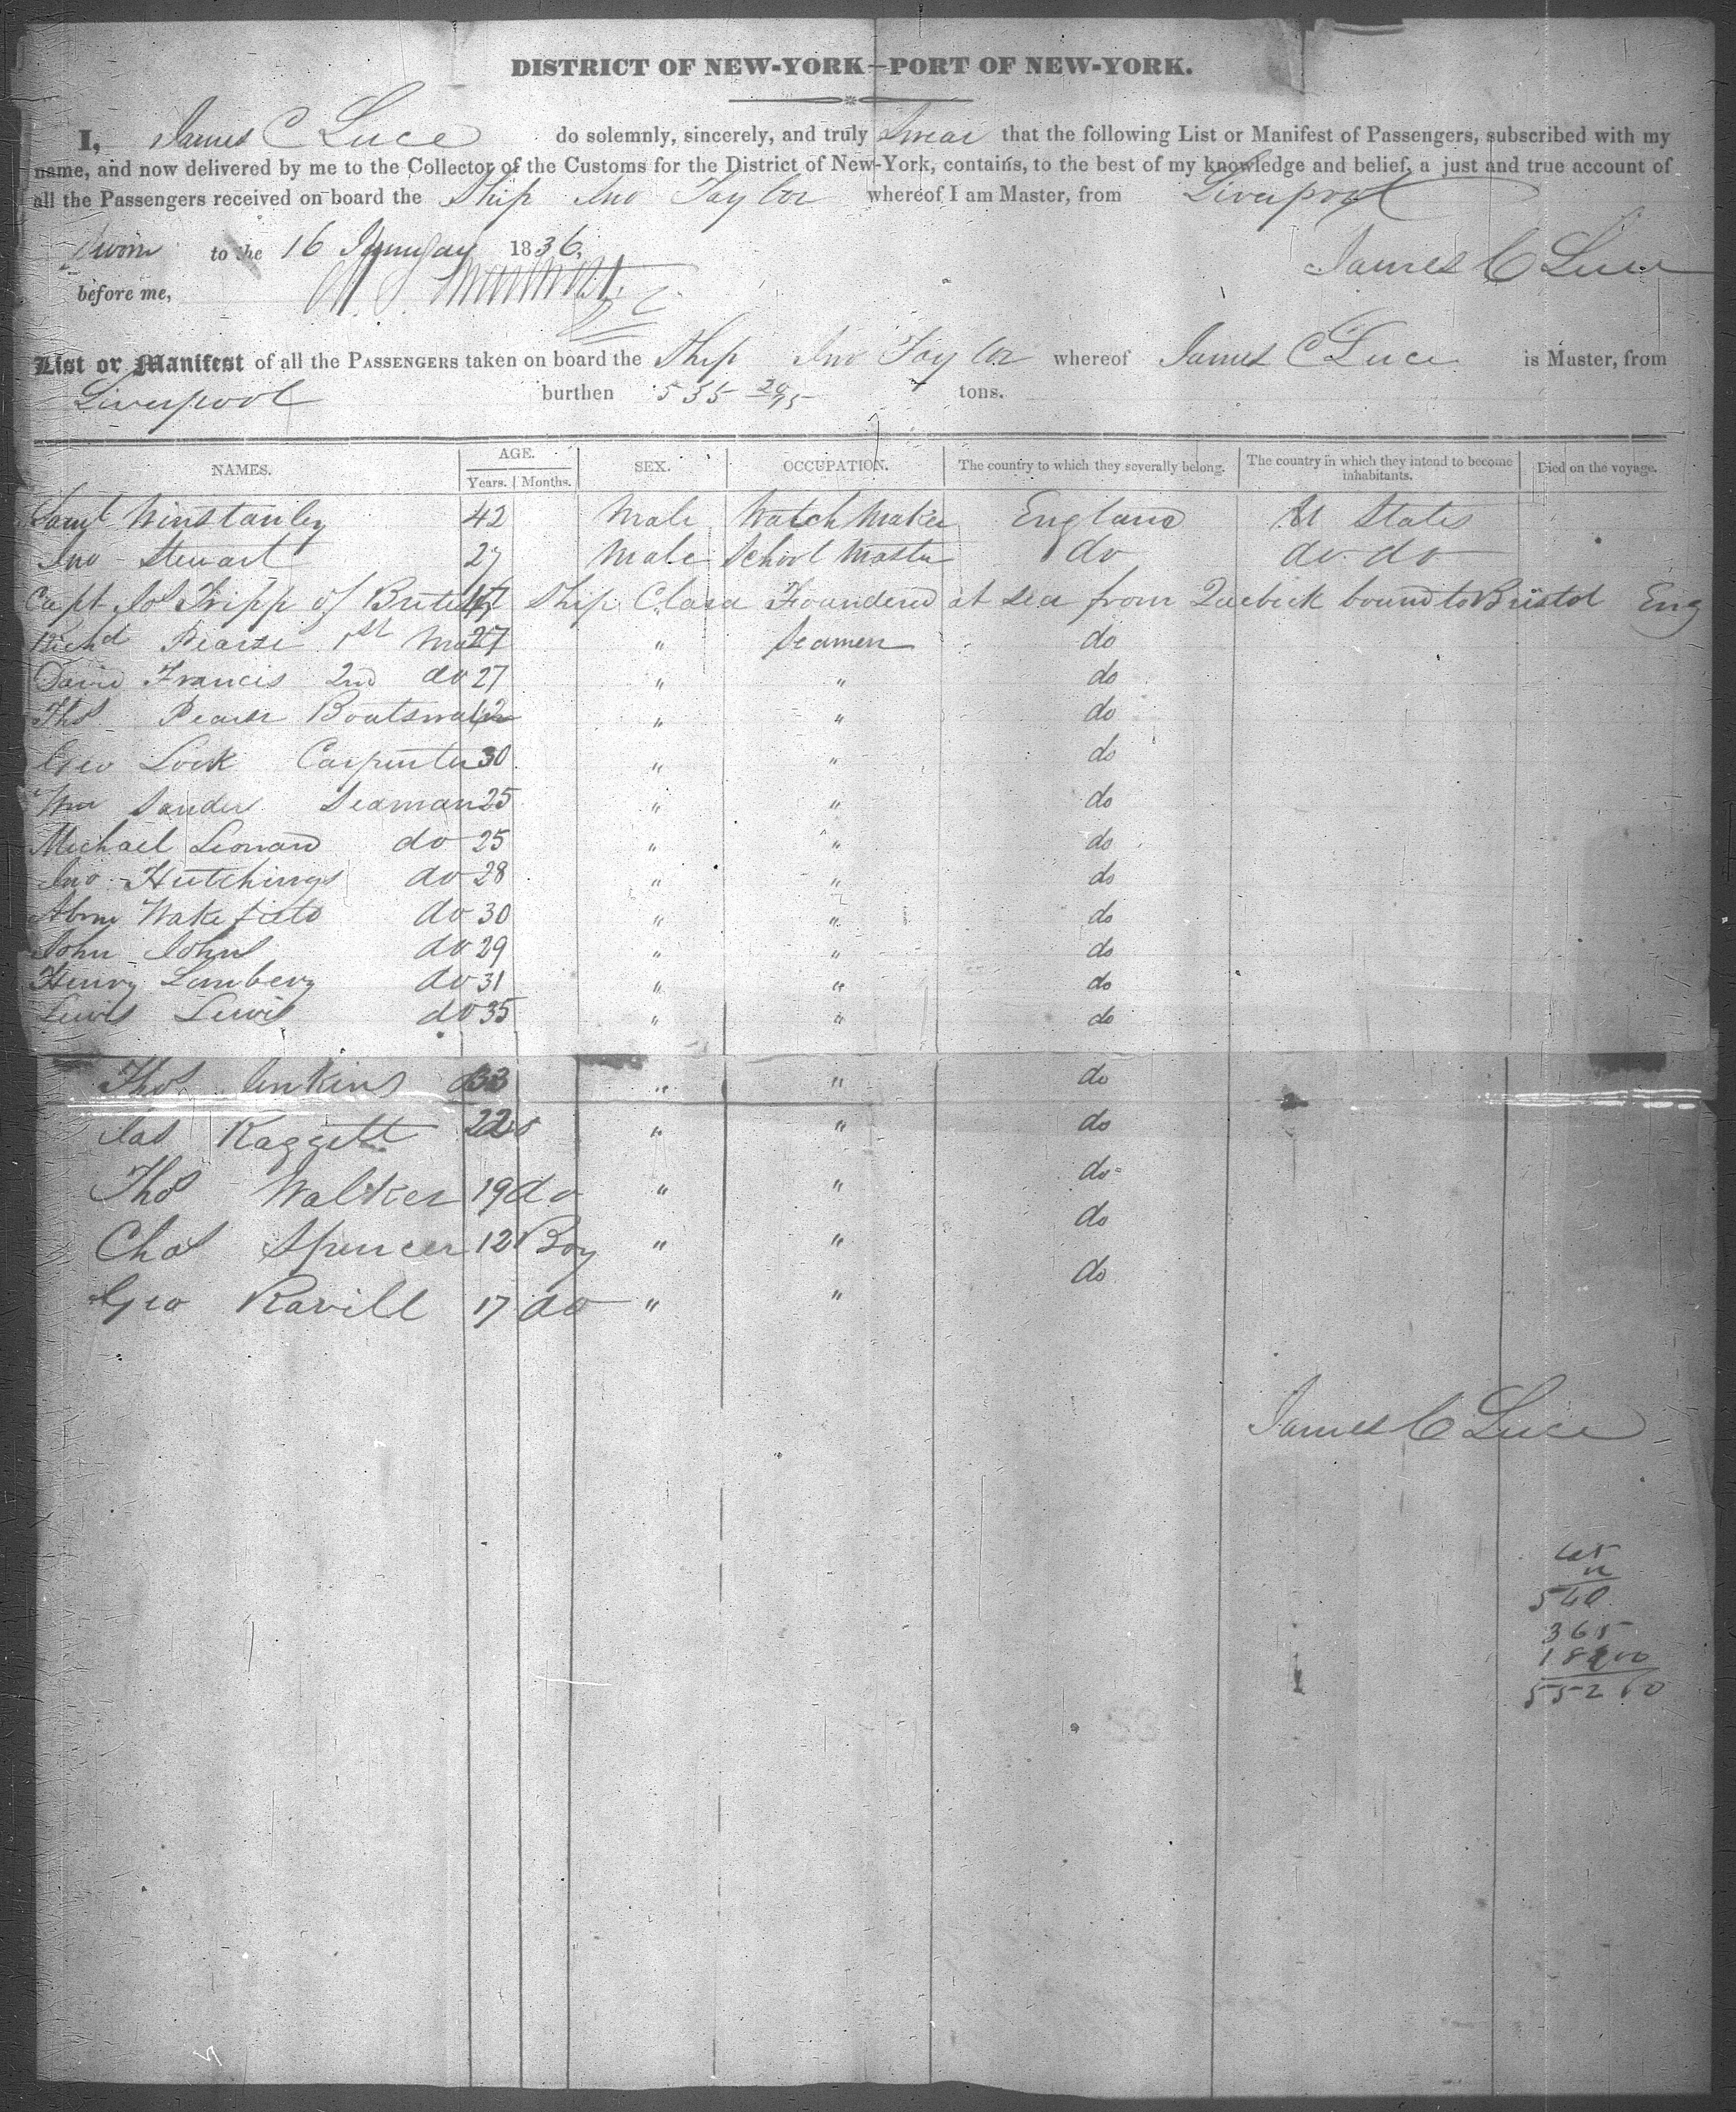 DISTRICT OF NEW-YORK—PORT OF NEW-YORK.
I, James C Luce do solemnly, sincerely, and truly Swear that the following List or Manifest of Passengers, subscribed with my
name, and now delivered by me to the Collector of the Customs for the District of New-York, contains, to the best of my knowledge and belief, a just and true account of
all the Passengers received on board the Ship Jno Taylor whereof I am Master, from Liverpool
Sworn to the 16 January 1836.
James C Luce
before me,
List or Manifest of all the PASSENGERS taken on board the Ship Jno Taylor whereof James C Luce is Master, from
Liverpool burthen 535 20/95 tons.
NAMES. AGE. Years. Months. SEX. OCCUPATION. The country to which they severally belong. The country in which they intend to become inhabitants. Died on the voyage.
Saml Winstanley 42 Male Watch Maker England U States
Jno Stewart 27 Male School Master do do do
Capt Jos Tripp of British Ship Clara Foundered at sea from Quebick bound to Bristol Eng
Richd Pearse 1st Mate 27 " Seamen do
David Francis 2nd do 27 " " do
Thos Pearse Boatswain 42 " " do
Geo Lock Carpenter 30 " " do
Wm Sanders Seaman 25 " " do
Michael Leonard do 25 " " do
Jno Hutchings do 28 " " do
Abm Wakefield do 30 " " do
John Johns do 29 " " do
Henry Lambery do 31 " " do
Lewis Lewis do 35 " " do
Thos Jenkins do 33 " " do
Jas Raggett 22 do " " do
Thos Walker 19 do " " do
Chas Spencer 12 Boy " " do
Geo Ravill 17 do " " do
James C Luce
540
365